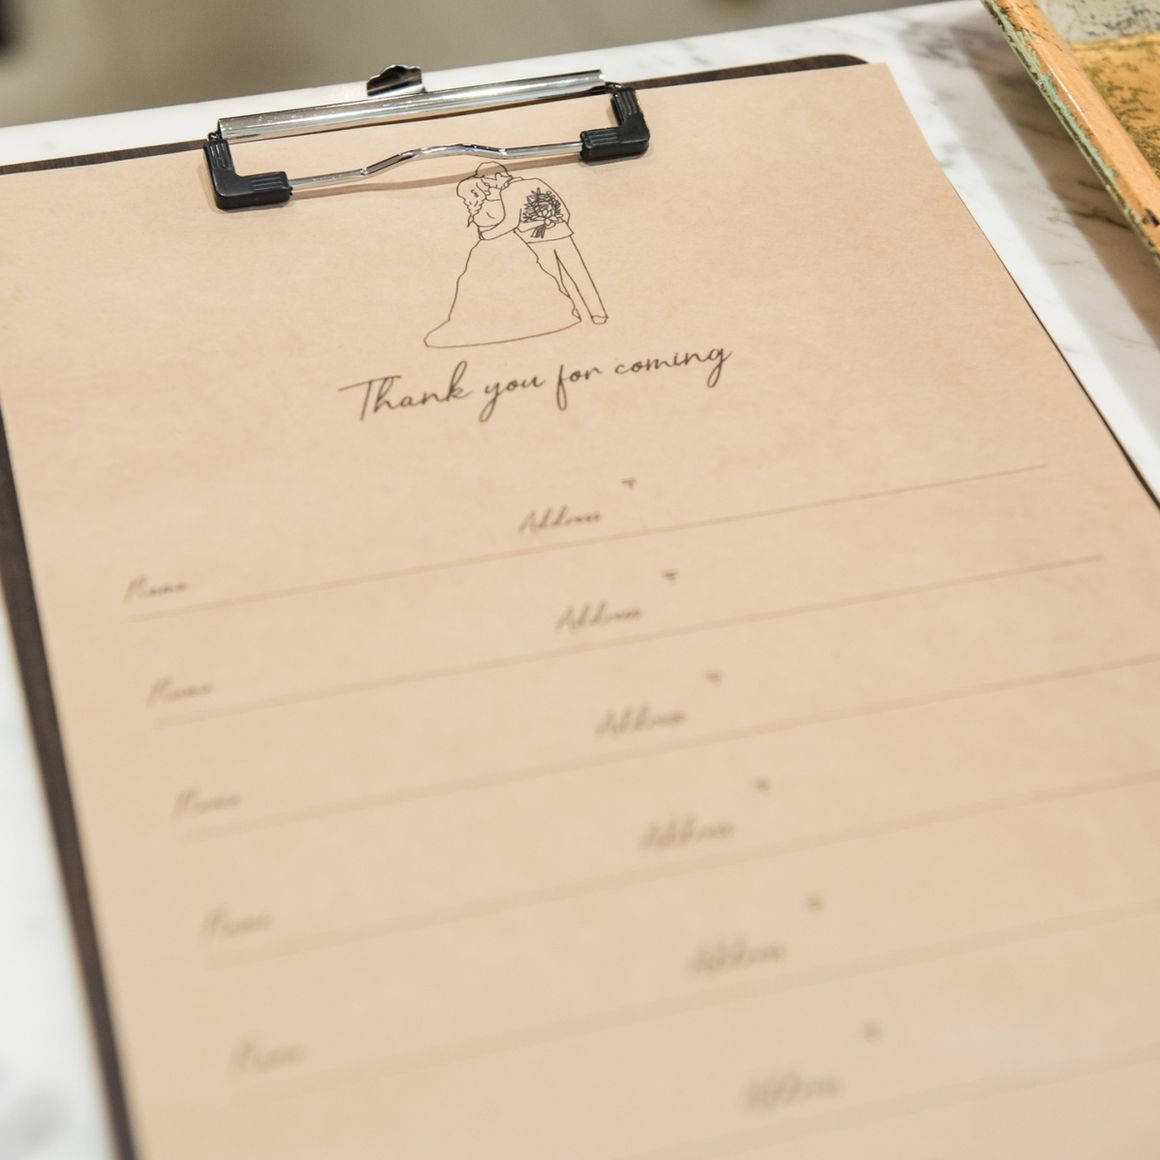 Thank you for coming
〒
Name Address
〒
Name Address
〒
Name Address
〒
Name Address
〒
Name Address
〒
Address